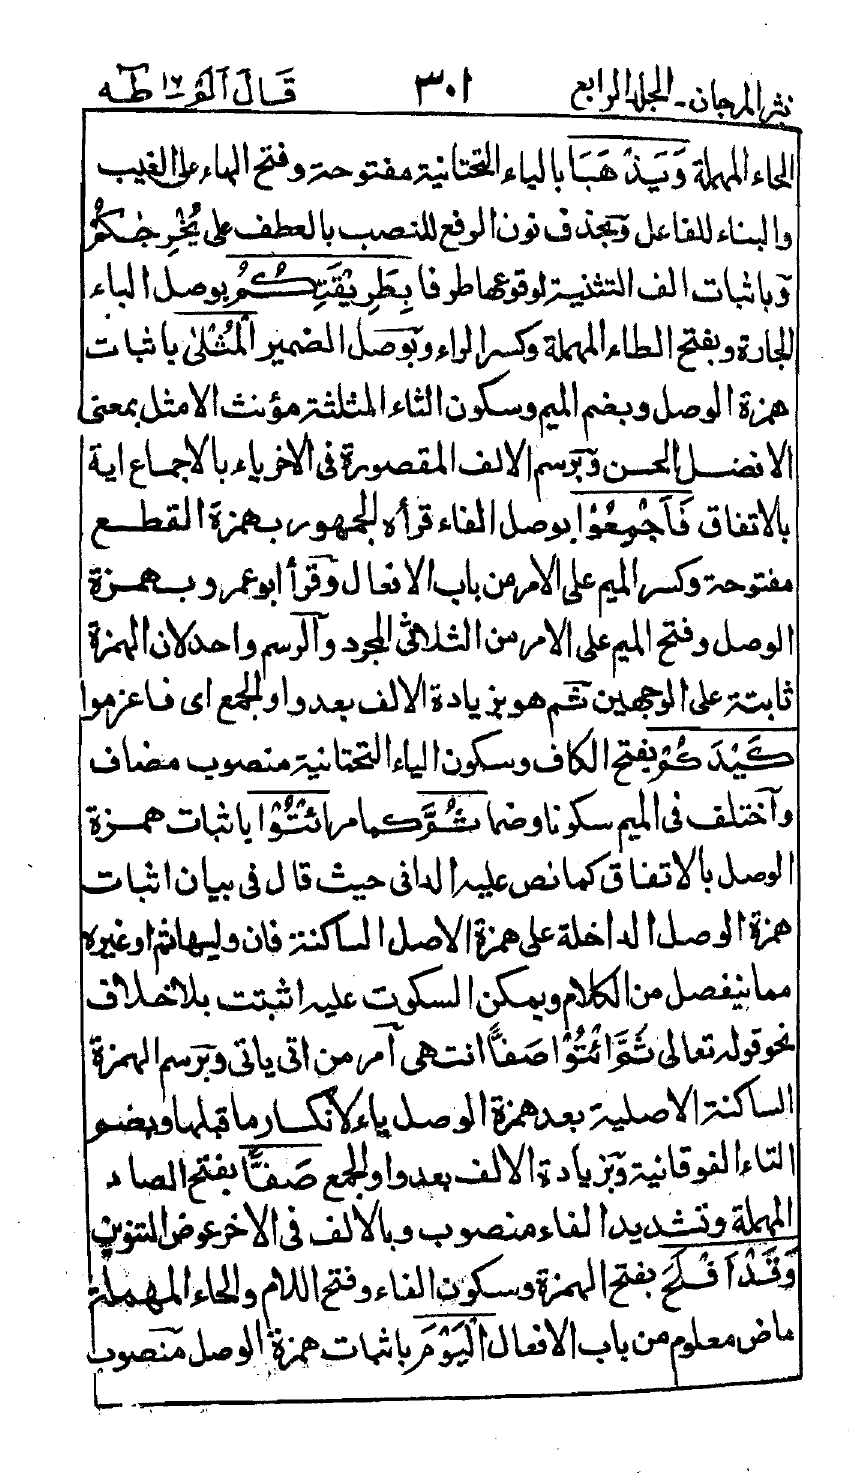 نثر المرجان - المجلد الرابع ٣٠١ قَالَ أَلَمْ ١٦ طٰهٰ
الحاء المهملة وَيَذْهَبَا بالياء التحتانية مفتوحة وفتح الهاء على الغيب
والبناء للفاعل وبحذف نون الرفع للنصب بالعطف على يُخْرِجٰكُمْ
وباثبات الف التثنية لوقوعها طرفا بِطَرِيْقَتِكُمُ بوصل الباء
الجارة وبفتح الطاء المهملة وكسر الراء وبوصل الضمير الْمُثْلٰى باثبات
همزة الوصل وبضم الميم وسكون الثاء المثلثة مؤنث الامثل بمعنى
الافضل الحسن وبرسم الالف المقصورة فى الاخر ياء بالاجماع اية
بالاتفاق فَاَجْمِعُوْا بوصل الفاء قرأه الجمهور بهمزة القطع
مفتوحة وكسر الميم على الامر من باب الافعال وقرأ ابو عمرو بهمزة
الوصل وفتح الميم على الامر من الثلاثى المجرد والرسم واحد لان الهمزة
ثابتة على الوجهين ثم هو بزيادة الالف بعد واو الجمع اى فاعزموا
كَيْدَكُمْ بفتح الكاف وسكون الياء التحتانية منصوب مضاف
واختلف فى الميم سكونا وضما ثُمَّ كما مر ائْتُوْا باثبات همزة
الوصل بالاتفاق كما نص عليه الدانى حيث قال فى بيان اثبات
همزة الوصل الداخلة على همزة الاصل الساكنة فان وليها ثم او غيره
مما ينفصل من الكلام ويمكن السكوت عليه اثبتت بلا خلاف
نحو قوله تعالى ثُمَّ ائْتُوْا صَفًّا انتهى أمر من اتى ياتى وبرسم الهمزة
الساكنة الاصلية بعد همزة الوصل ياء لانكسار ما قبلها وبضم
التاء الفوقانية وبزيادة الالف بعد واو الجمع صَفًّا بفتح الصاد
المهملة وتشديد الفاء منصوب وبالالف فى الاخر عوض التنوين
وَقَدْ اَفْلَحَ بفتح الهمزة وسكون الفاء وفتح اللام والحاء المهملة
ماض معلوم من باب الافعال الْيَوْمَ باثبات همزة الوصل منصوب